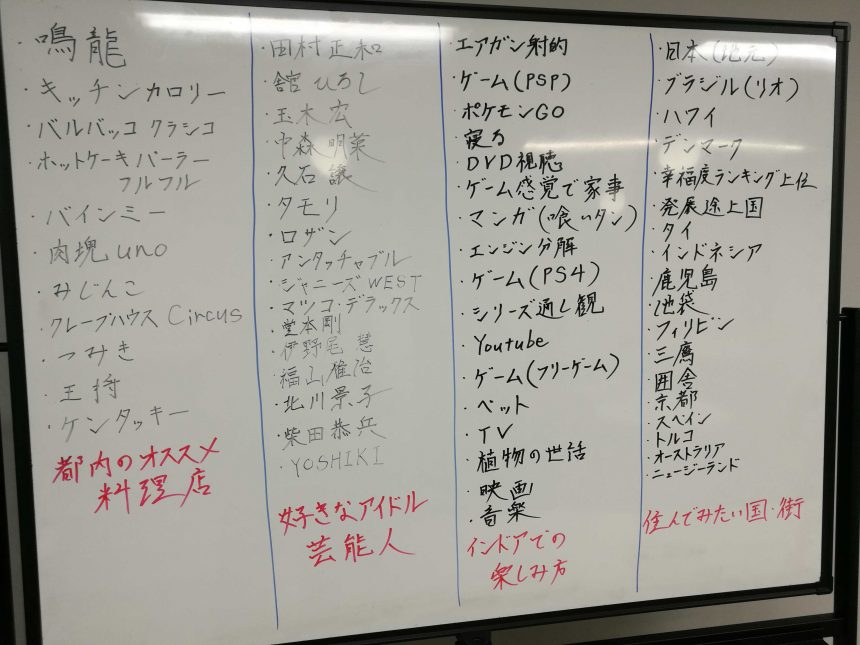 ・鳴龍
・キッチンカロリー
・バルバッコ クラシコ
・ホットケーキパーラー
フルフル
・バインミー
・肉塊uno
・みじんこ
・クレープハウス Circus
・つみき
・王将
・ケンタッキー
都内のオススメ
料理店
・田村正和
・舘ひろし
・玉木宏
・中森明菜
・久石譲
・タモリ
・ロザン
・アンタッチャブル
・ジャニーズWEST
・マツコ・デラックス
・堂本剛
・伊野尾慧
・福山雅治
・北川景子
・柴田恭兵
・YOSHIKI
好きなアイドル
芸能人
・エアガン射的
・ゲーム(PSP)
・ポケモンGO
・寝る
・DVD視聴
・ゲーム感覚で家事
・マンガ(喰いタン)
・エンジン分解
・ゲーム(PS4)
・シリーズ通し観
・Youtube
・ゲーム(フリーゲーム)
・ペット
・TV
・植物の世話
・映画
・音楽
インドアでの
楽しみ方
・日本(地元)
・ブラジル(リオ)
・ハワイ
・デンマーク
・幸福度ランキング上位
・発展途上国
・タイ
・インドネシア
・鹿児島
・池袋
・フィリピン
・三鷹
・田舎
・京都
・スペイン
・トルコ
・オーストラリア
・ニュージーランド
住んでみたい国・街